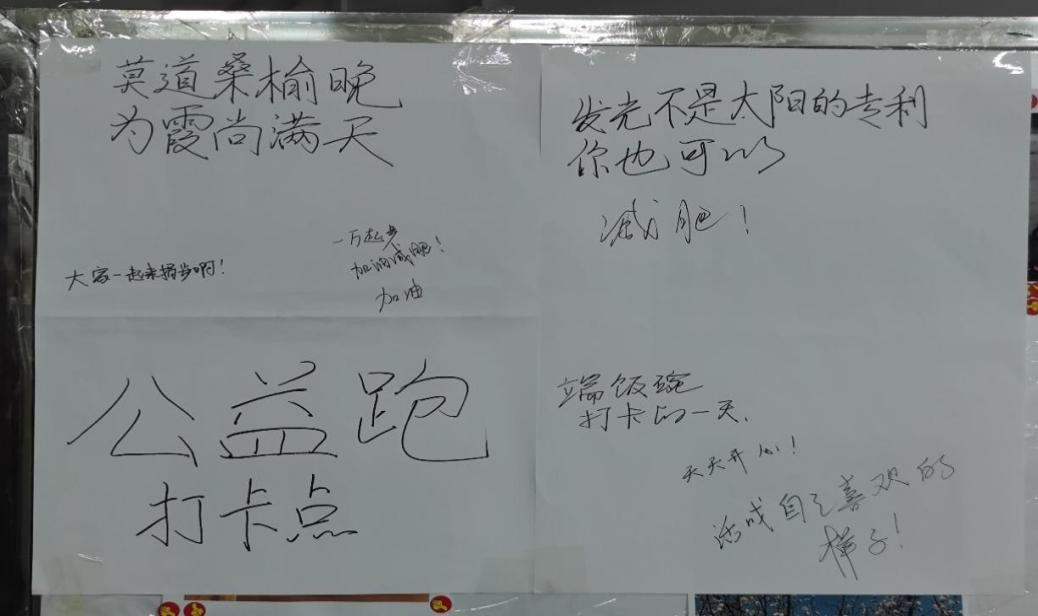 莫道桑榆晚
为霞尚满天
大家一起来踏步啊！
一万起步
加油减肥！
加油
公益跑
打卡点
发光不是太阳的专利
你也可以
减肥！
端饭碗
打卡的一天.
天天开心！
活成自己喜欢的
样子！